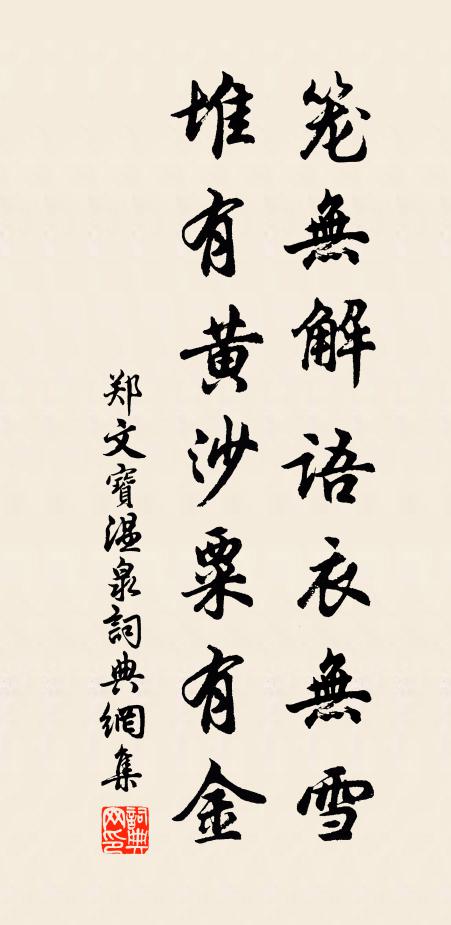 笼無解語衣無雪
堆有黄沙粟有金
郑文寶温泉詞典網集
詞典網印